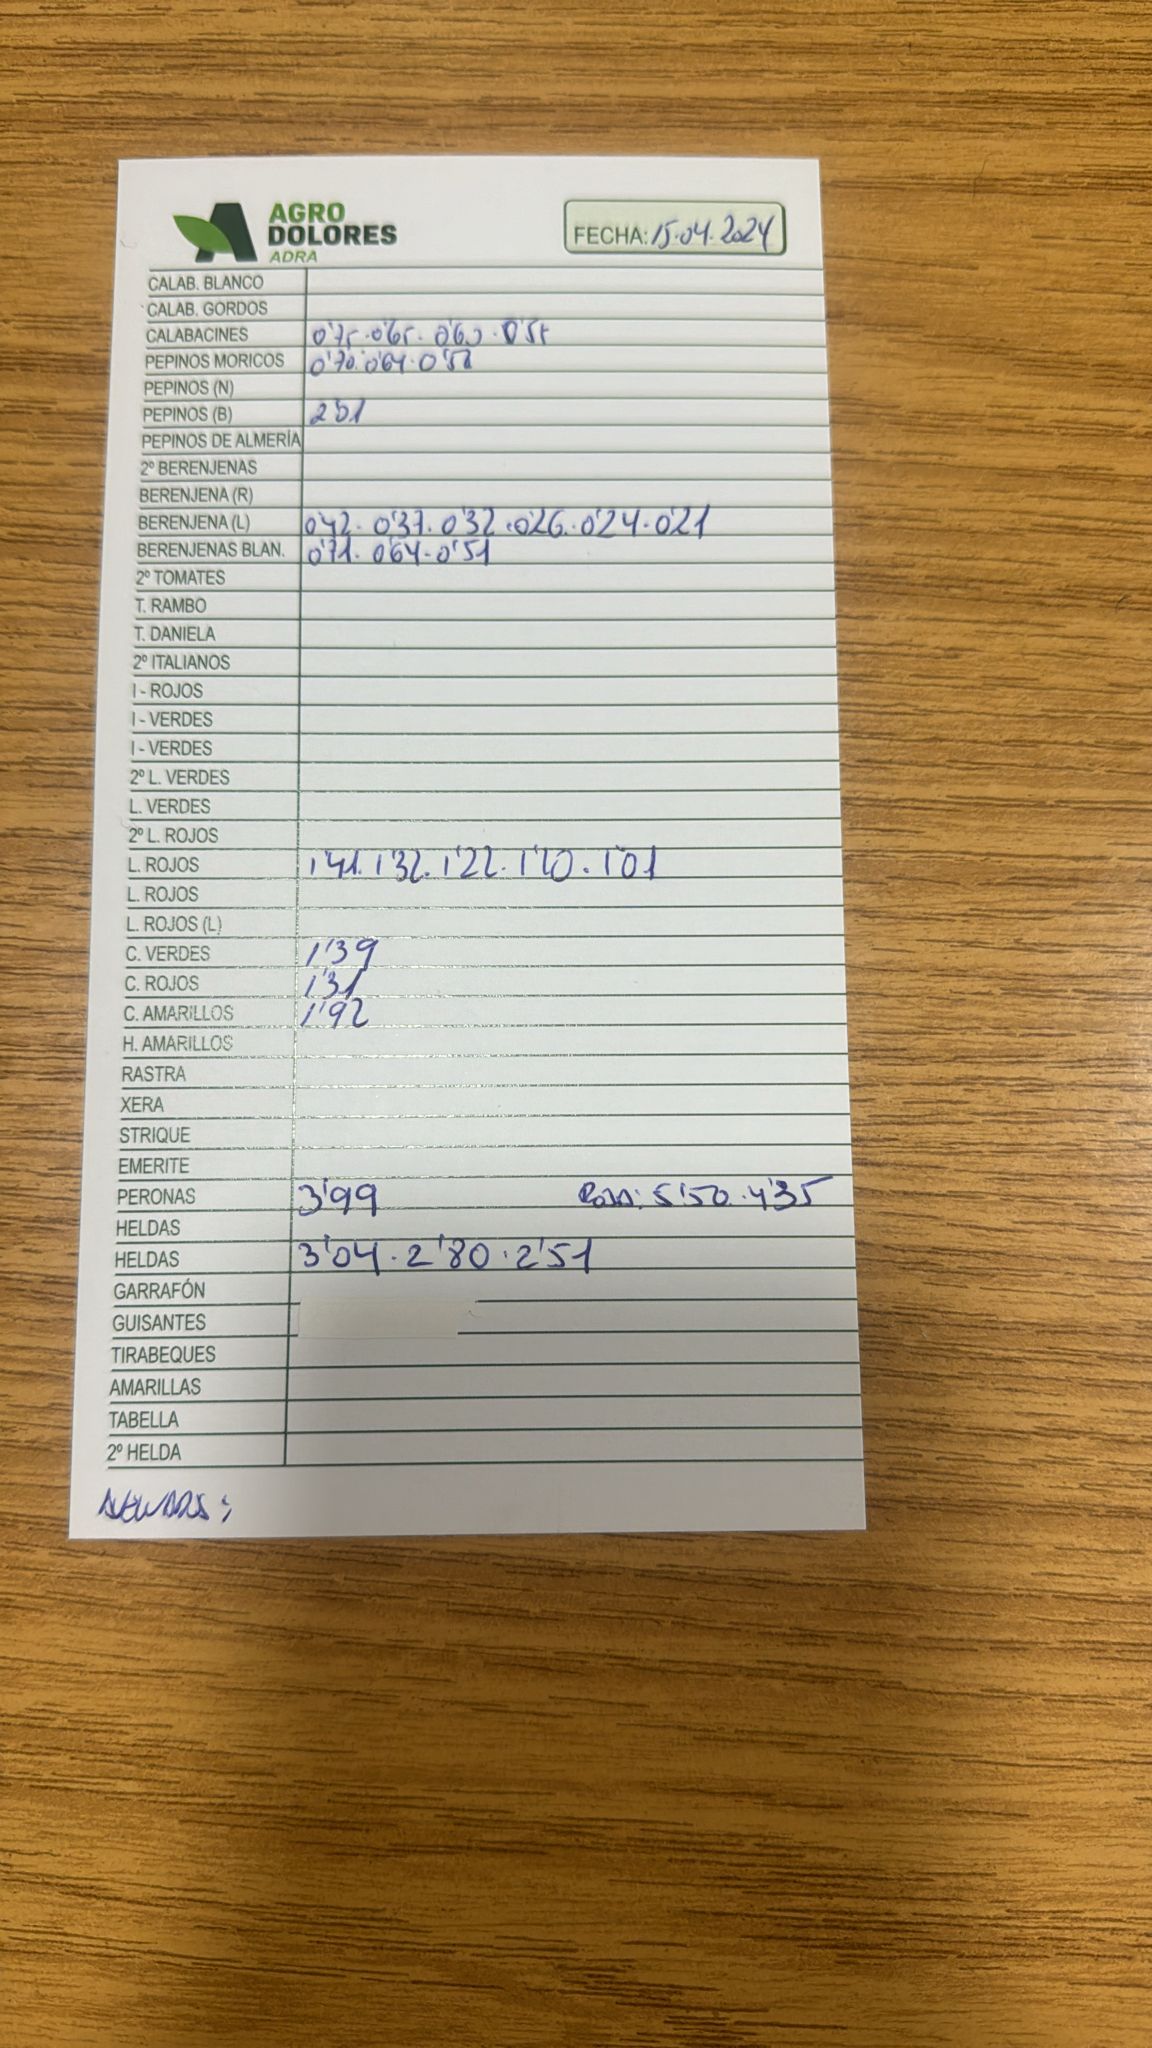 AGRO
DOLORES
ADRA
FECHA: 15.04.2024
CALAB. BLANCO
CALAB. GORDOS
CALABACINES 0'75.0'65.0'60.0'55
PEPINOS MORICOS 0'70.0'64.0'58
PEPINOS (N)
PEPINOS (B)
PEPINOS DE ALMERÍA
2º BERENJENAS
BERENJENA (R)
BERENJENA (L) 0'42.0'37.0'32.0'26.0'24.0'21
BERENJENAS BLAN. 0'71.0'64.0'51
2º TOMATES
T. RAMBO
T. DANIELA
2º ITALIANOS
I - ROJOS
I - VERDES
I - VERDES
2º L. VERDES
L. VERDES
2º L. ROJOS
L. ROJOS 1'41.1'32.1'22.1'10.1'01
L. ROJOS
L. ROJOS (L)
C. VERDES 1'39
C. ROJOS 1'31
C. AMARILLOS 1'92
H. AMARILLOS
RASTRA
XERA
STRIQUE
EMERITE
PERONAS 3'99 ROJA: 5'50.4'35
HELDAS
HELDAS 3'04.2'80.2'51
GARRAFÓN
GUISANTES
TIRABEQUES
AMARILLAS
TABELLA
2º HELDA